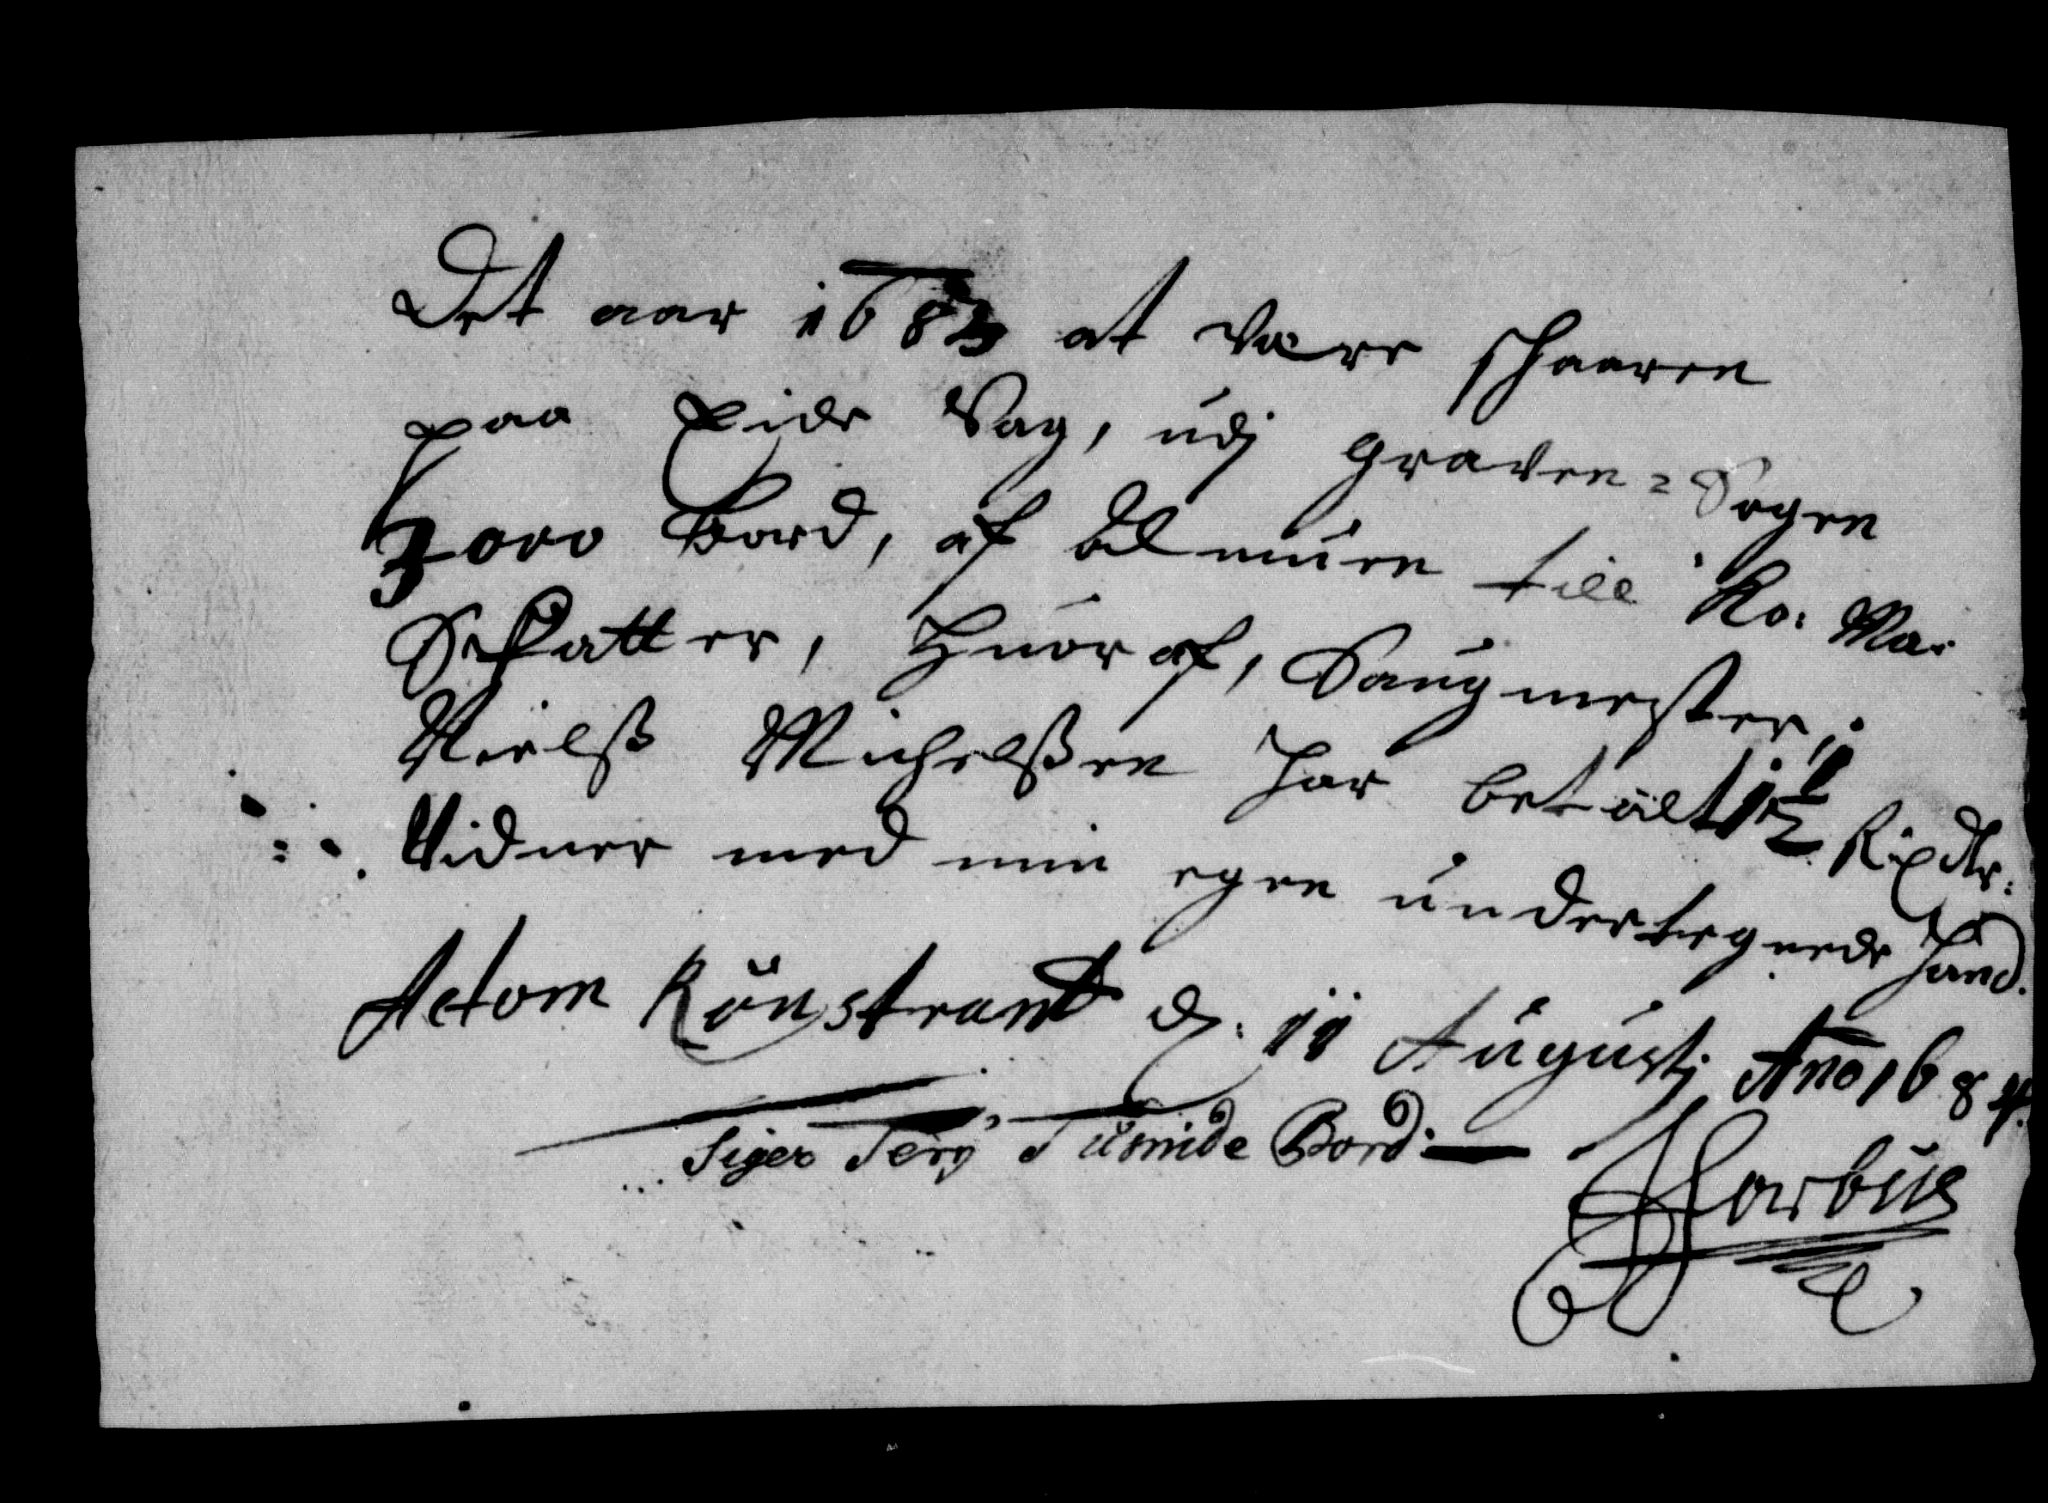 Det aar 1683 at være schaaren
paa Eide Sag, udj Graven-Sogen
3000 Bord, af Almuen till Ko: Ma:
Schatter, Huoraf, Saugmester,
Nielß Michelßen har betalt 1½ Rixdlr:
Vidner med min egen undertegnede Hand.
Actom Rönstrand d. 11 Augustj Ano 1684.
Siger Tery Tusinde Bord: